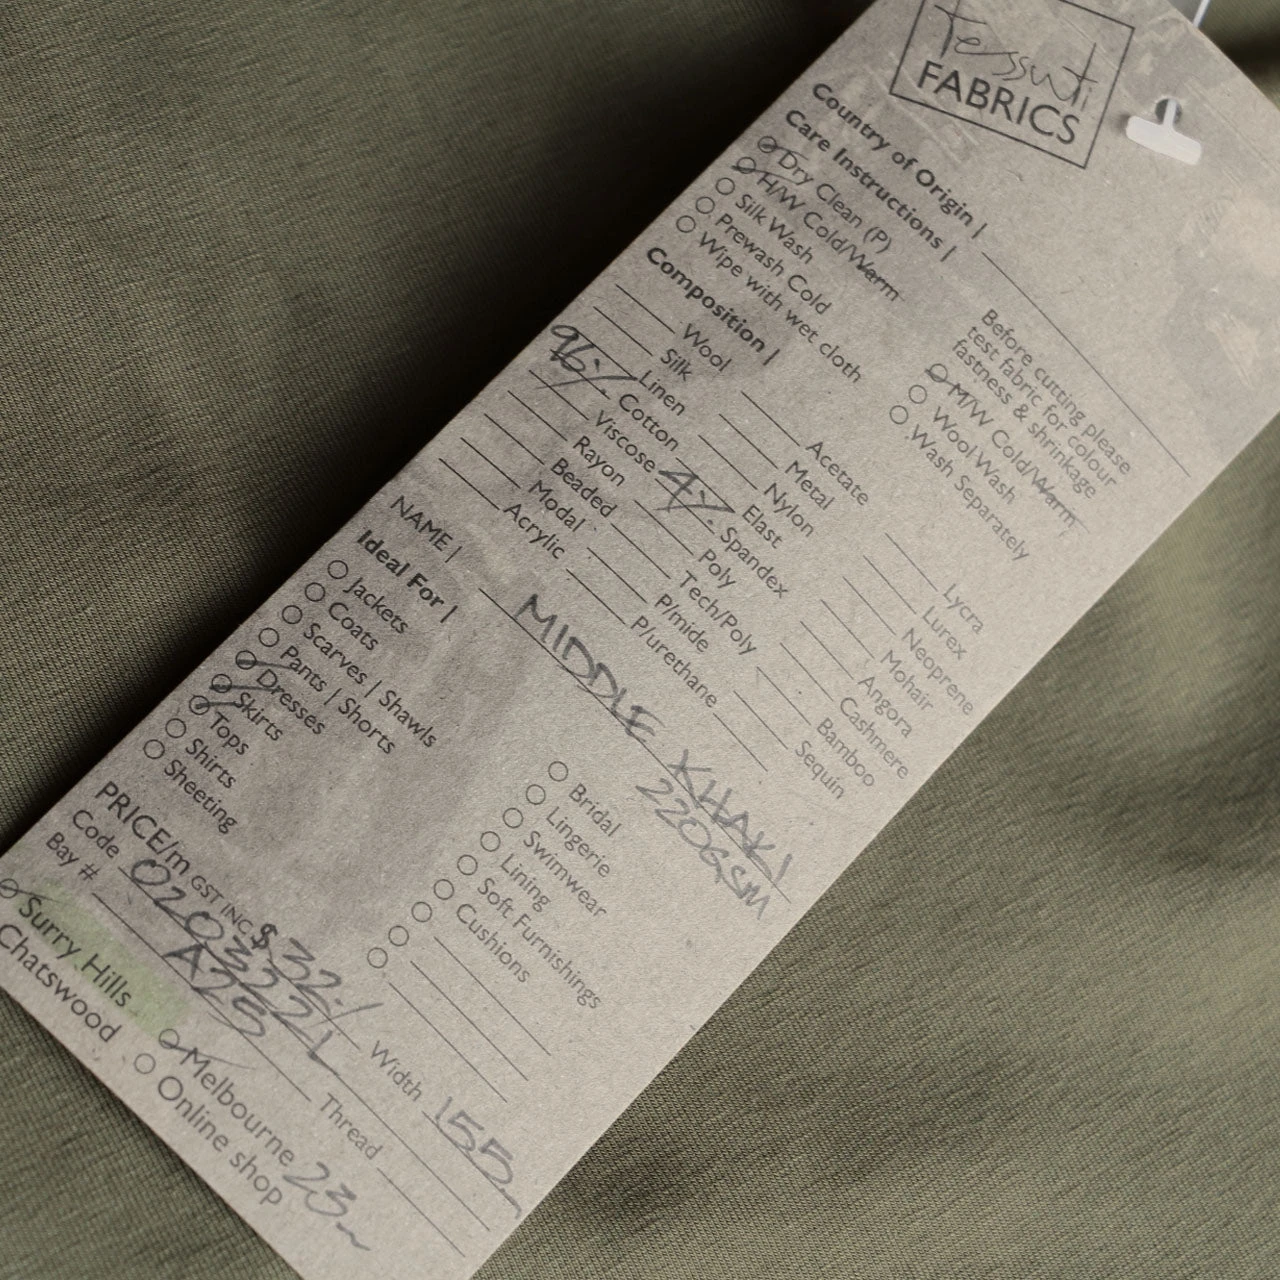 Tessuti
FABRICS
Country of Origin |
Care Instructions |
Dry Clean (P)
H/W Cold/Warm
Silk Wash
Prewash Cold
Wipe with wet cloth
Before cutting please
test fabric for colour
fastness & shrinkage
M/W Cold/Warm
Wool Wash
Wash Separately
Composition |
Wool
Silk
Linen
96% Cotton
Viscose
Rayon
Beaded
Modal
Acrylic
Acetate
Metal
Nylon
Elast
4% Spandex
Poly
Tech/Poly
P/mide
P/urethane
Lycra
Lurex
Neoprene
Mohair
Angora
Cashmere
Bamboo
Sequin
NAME | MIDDLE KHAKI
220GSM
Ideal For |
Jackets
Coats
Scarves | Shawls
Pants | Shorts
Dresses
Skirts
Tops
Shirts
Sheeting
Bridal
Lingerie
Swimwear
Lining
Soft Furnishings
Cushions
PRICE/m GST INC $32.
Width 155
Code 0203221
Thread
Bay # A25
Surry Hills
Melbourne 23m
Chatswood
Online shop